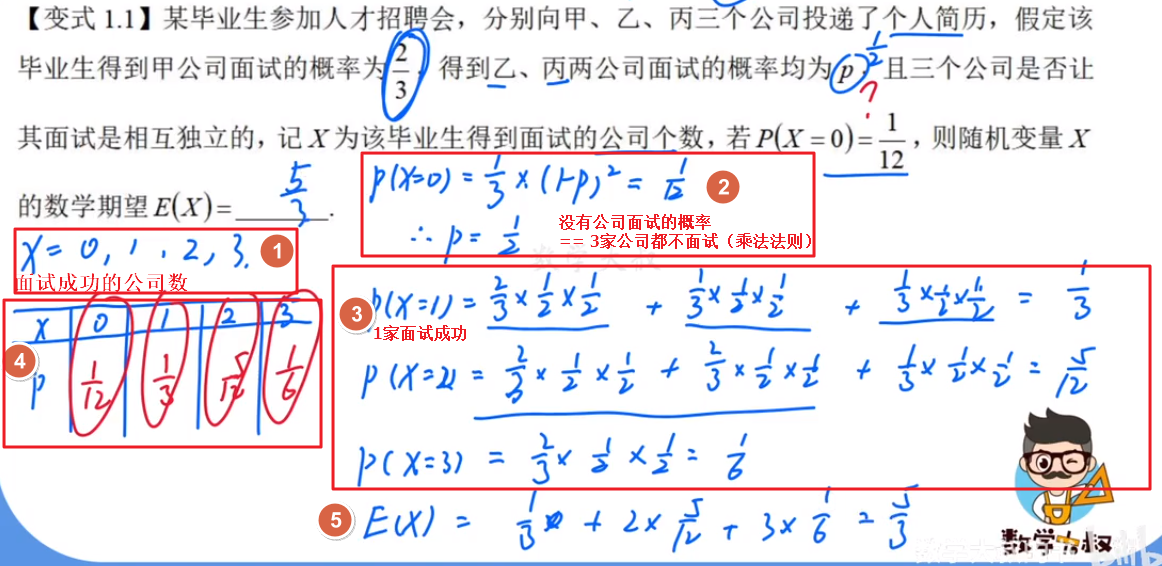 【变式 1.1】某毕业生参加人才招聘会，分别向甲、乙、丙三个公司投递了个人简历，假定该
毕业生得到甲公司面试的概率为 2/3，得到乙、丙两公司面试的概率均为 p，且三个公司是否让
1/2
?
其面试是相互独立的，记 X 为该毕业生得到面试的公司个数，若 P(X = 0) = 1/12，则随机变量 X
的数学期望 E(X) = 5/3 .
X = 0, 1, 2, 3. 1
面试成功的公司数
P(X=0) = 1/3 × (1-P)² = 1/12 2
∴ P = 1/2
没有公司面试的概率
== 3家公司都不面试（乘法法则）
3 P(X=1) = 2/3 × 1/2 × 1/2 + 1/3 × 1/2 × 1/2 + 1/3 × 1/2 × 1/2 = 1/3
1家面试成功
P(X=2) = 2/3 × 1/2 × 1/2 + 2/3 × 1/2 × 1/2 + 1/3 × 1/2 × 1/2 = 5/12
P(X=3) = 2/3 × 1/2 × 1/2 = 1/6
4
X 0 1 2 3
P 1/12 1/3 5/12 1/6
5 E(X) = 1/3 + 2 × 5/12 + 3 × 1/6 = 5/3
数学大叔